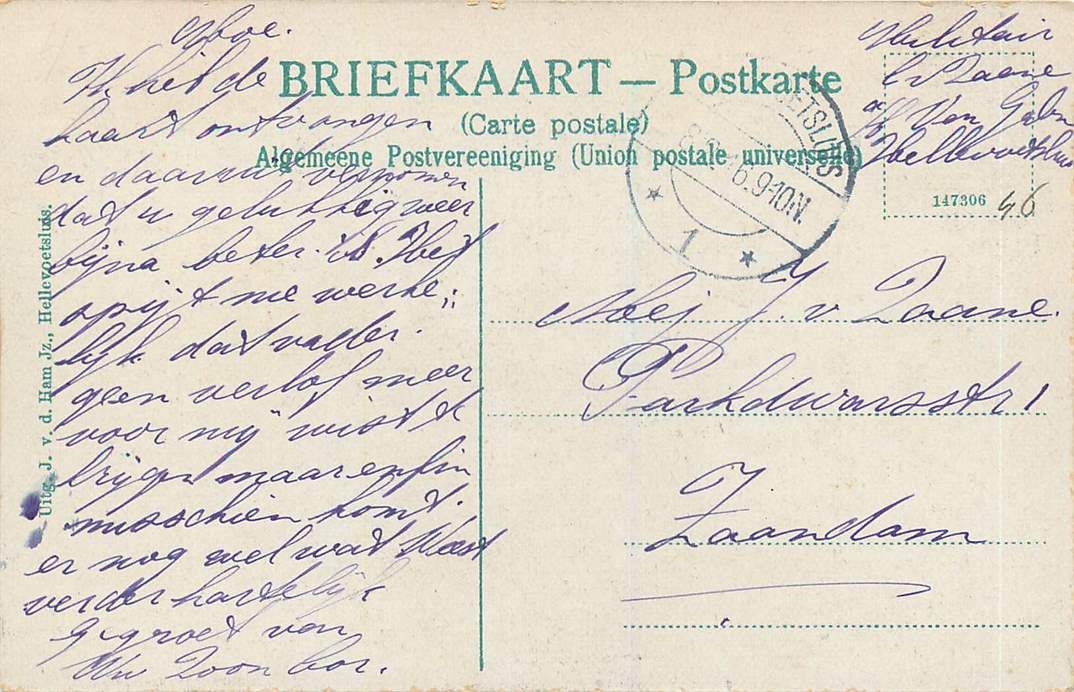 BRIEFKAART — Postkarte
(Carte postale)
Algemeene Postvereeniging (Union postale universelle)
Uitg. J. v. d. Ham Jz., Hellevoetsluis.
147306
46
Militair
C v Zaane
Van
Hellevoetsluis
ETSLUIS
6.9-10N
1
Mej J. v Zaane.
Parkdwarsstr 1
Zaandam
Moe.
Ik heb de
kaart ontvangen
en daaruit vernomen
dat u gelukkig weer
bijna beter is. Het
spijt me werke„
lijk dat vader
geen verlof meer
voor mij wist te
krijgen maar enfin
misschien komt
er nog wel wat Moest
verder hartelijk
gegroet van
Uw Zoon Cor.